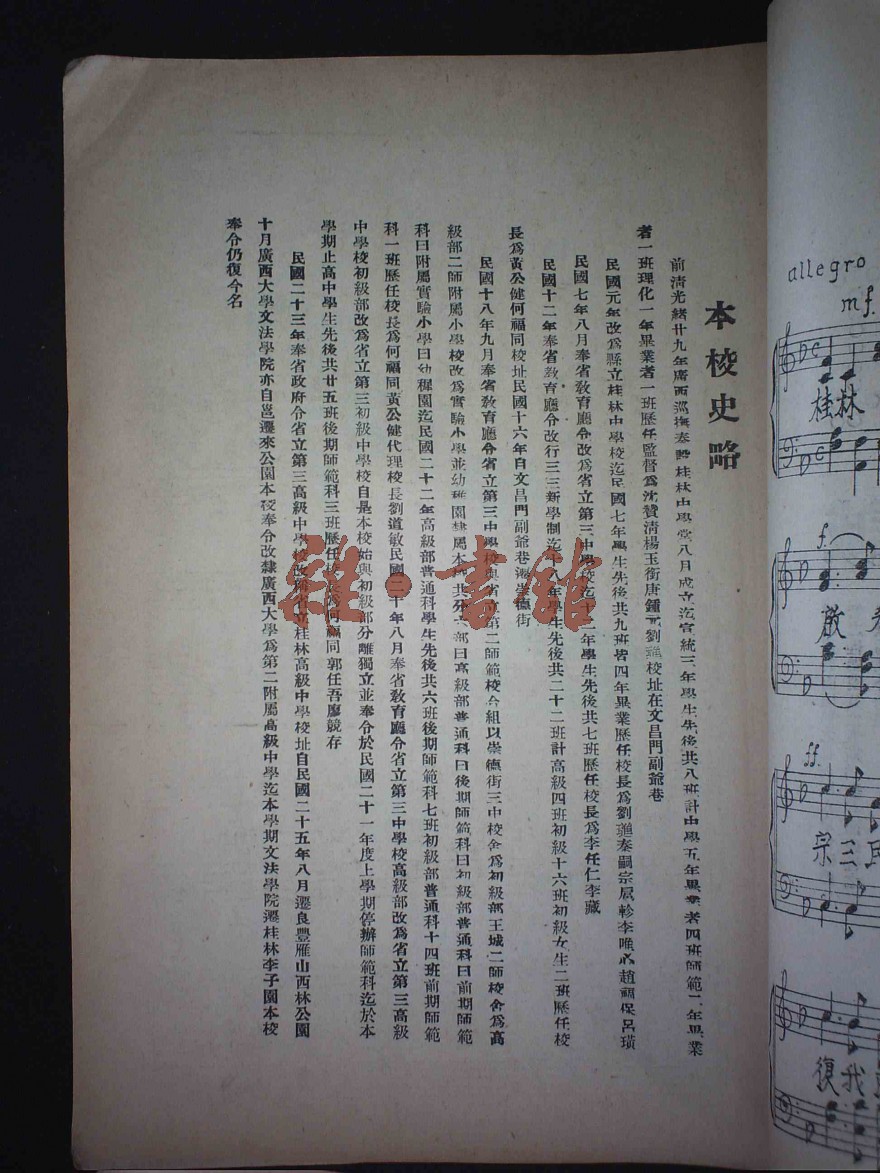 本校史略
前清光緒廿九年廣西巡撫奏辦桂林中學堂八月成立迄宣統三年學生先後共八班計中學五年畢業者四班師範二年畢業
者一班理化一年畢業者一班歷任監督爲沈贊清楊玉銜唐鍾元劉 校址在文昌門副爺巷
民國元年改爲縣立桂林中學校迄民國七年學生先後共九班皆四年畢業歷任校長爲劉 秦嗣宗 李 趙福保呂璜
民國七年八月奉省敎育廳令改爲省立第三中學校迄十二年學生先後共七班歷任校長爲李任仁李藏
民國十二年奉省敎育廳令改行三三新學制迄十八年學生先後共二十二班計高級四班初級十六班初級女生二班歷任校
長爲黃公健何福同校址民國十六年自文昌門副爺巷遷崇德街
民國十八年九月奉省敎育廳令省立第三中學校與省立第二師範校合組以崇德街三中校舍爲初級部王城二師校舍爲高
級部二師附屬小學校改爲實驗小學並幼稚園隸屬本校共分六部曰高級部普通科曰後期師範科曰初級部普通科曰前期師範
科曰附屬實驗小學曰幼稚園迄民國二十二年高級部普通科學生先後共六班後期師範科七班初級部普通科十四班前期師範
科一班歷任校長爲何福同黃公健代理校長劉道敏民國二十年八月奉省敎育廳令省立第三中學校高級部改爲省立第三高級
中學校初級部改爲省立第三初級中學校自是本校始與初級部分離獨立並奉令於民國二十一年度上學期停辦師範科迄於本
學期止高中學生先後共廿五班後期師範科三班歷任校長爲何福同郭任吾廖競存
民國二十三年奉省政府令省立第三高級中學校改稱省立桂林高級中學校址自民國二十五年八月遷良豐雁山西林公園
十月廣西大學文法學院亦自邕遷來公園本校奉令改隸廣西大學爲第二附屬高級中學迄本學期文法學院遷桂林李子園本校
奉令仍復今名
雜·書館
allegro
mf.
桂林
f.
啟
ff.
宗三民
復我